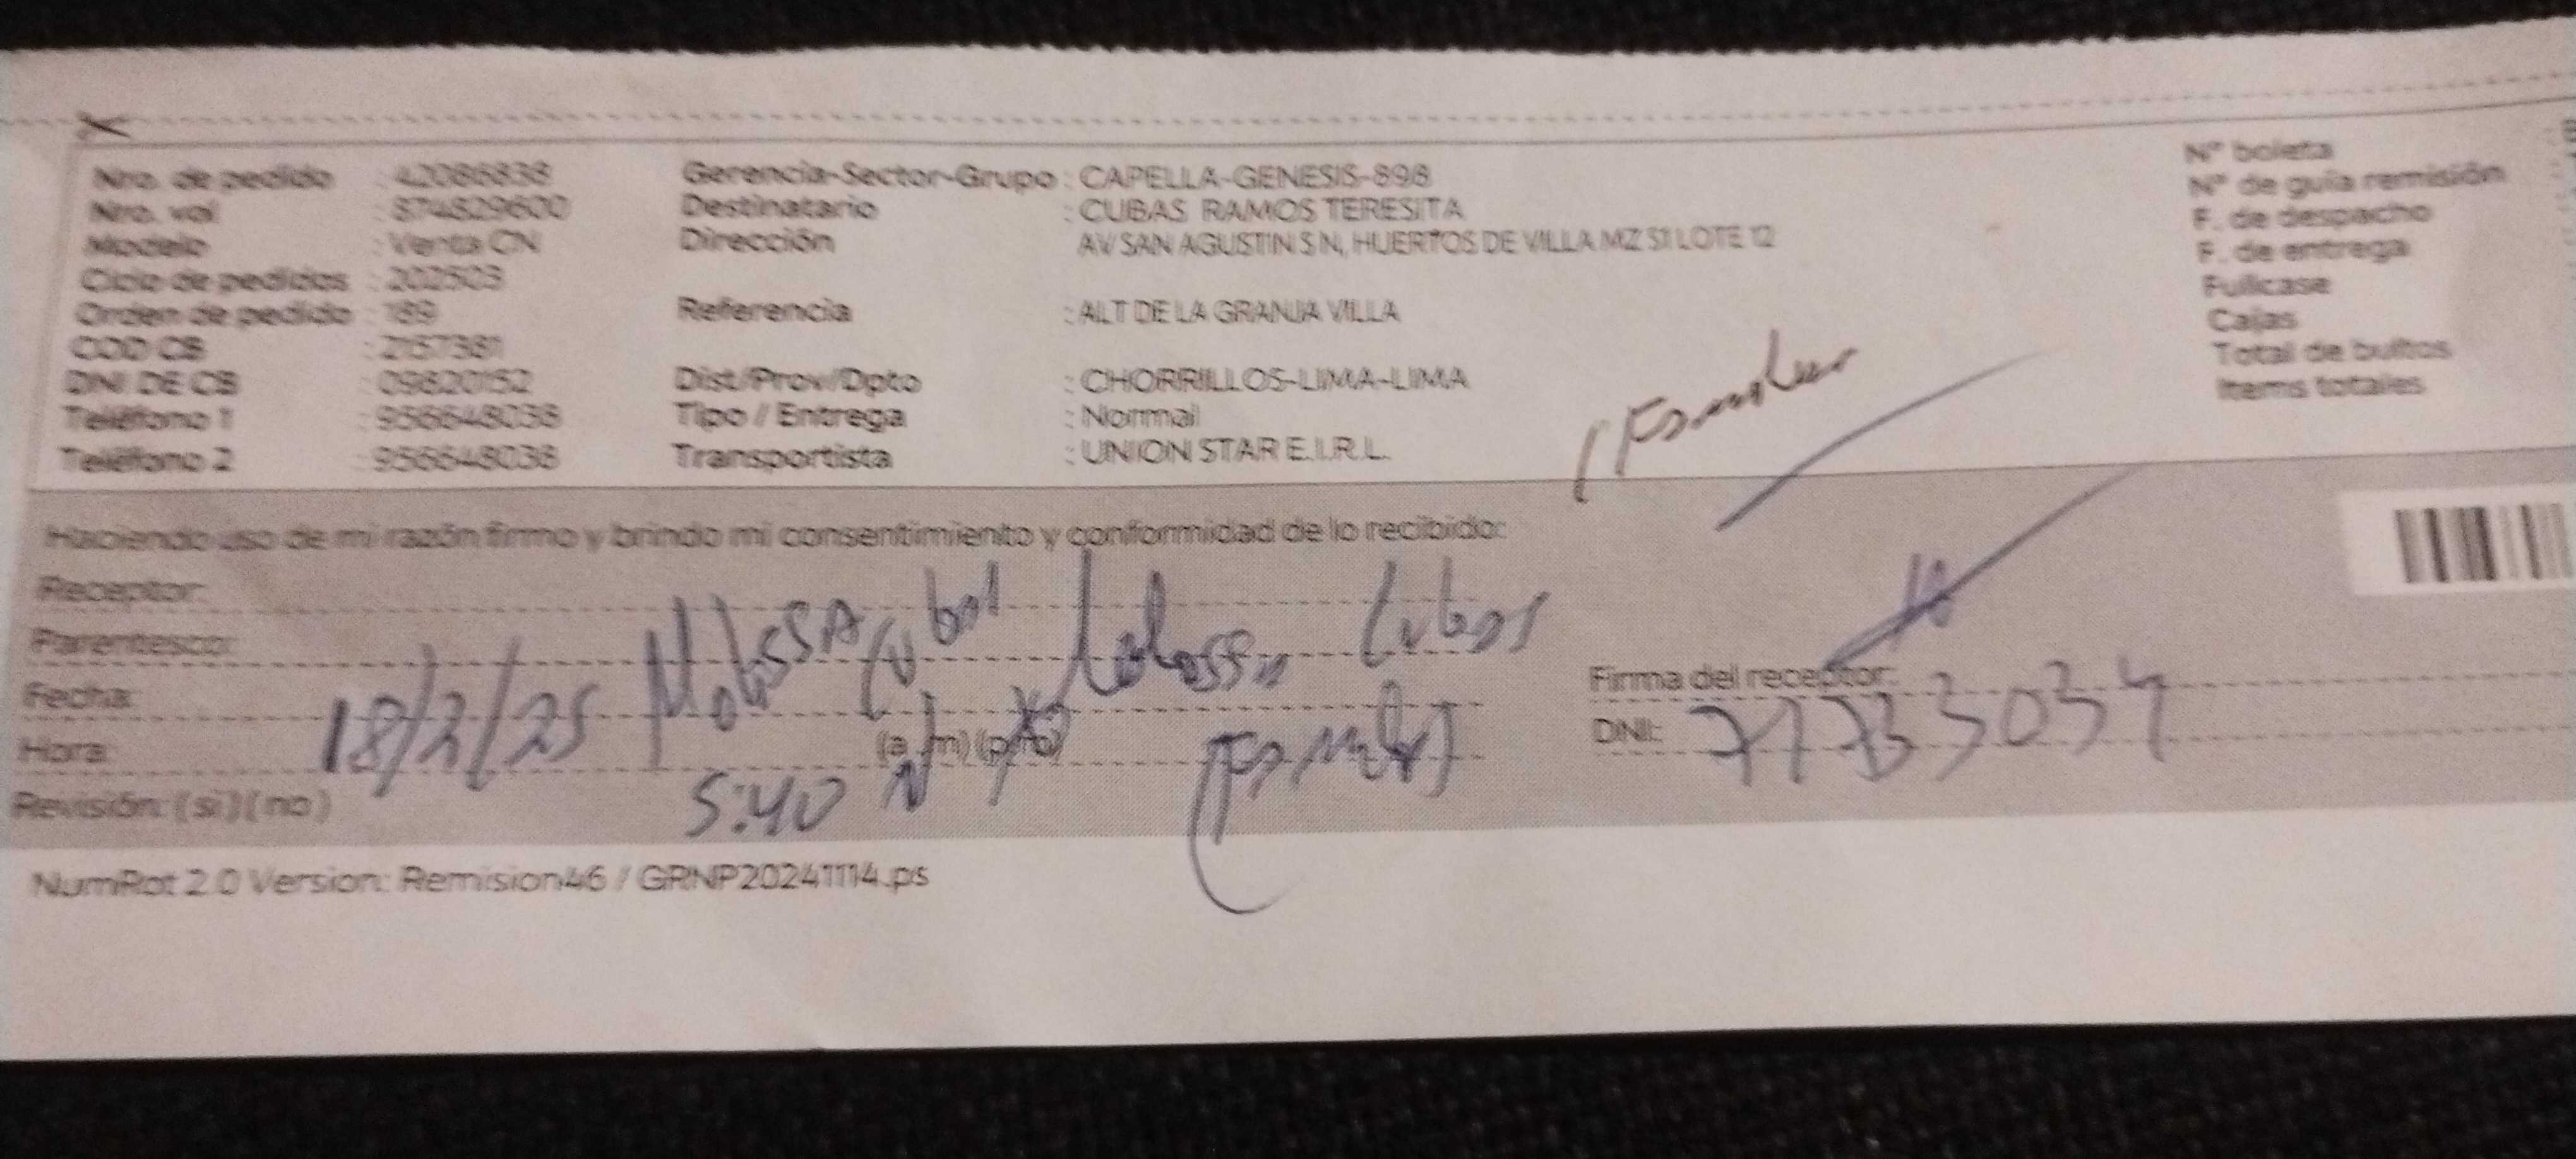 Nro. de pedido : 42086838 Gerencia-Sector-Grupo : CAPELLA-GENESIS-898 N° boleta
Nro. val : 874829600 Destinatario : CUBAS RAMOS TERESITA N° de guía remisión
Modelo : Venta CN Dirección AV SAN AGUSTIN S N, HUERTOS DE VILLA MZ S1 LOTE 12 F. de despacho
Ciclo de pedidos : 202503 F. de entrega
Orden de pedido : 189 Referencia : ALT DE LA GRANJA VILLA Fullcase
COD CB : 2157381 Cajas
DNI DE CB : 09820152 Dist/Prov/Dpto : CHORRILLOS-LIMA-LIMA Total de bultos
Teléfono 1 : 956648038 Tipo / Entrega : Normal Items totales
Teléfono 2 : 956648038 Transportista : UNION STAR E.I.R.L.
Haciendo uso de mi razón firmo y brindo mi consentimiento y conformidad de lo recibido:
Receptor:
Parentesco: Cubas Cubas
Fecha: 18/2/25 Firma del receptor:
Hora: (a .m) (p.m) DNI: 71733034
Revisión: (si) (no) 5:40
NumRot 2.0 Version: Remision46 / GRNP20241114.ps